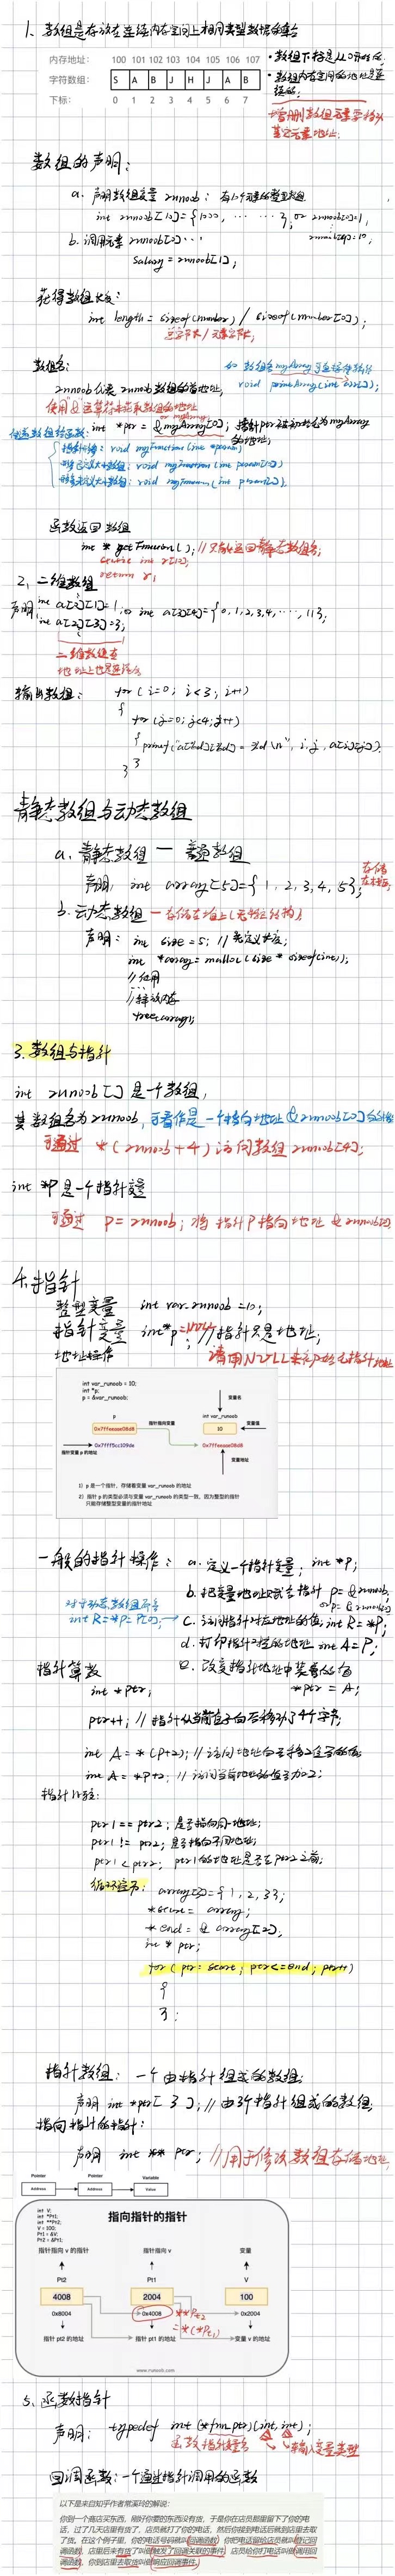 1、数组是存放在连续内存空间上相同类型数据的集合
内存地址： 100 101 102 103 104 105 106 107
字符数组： S A B J H J A B
下标： 0 1 2 3 4 5 6 7
·数组下标是从0开始的.
·数组内存空间的地址是连续的.
增删数组元素要移动其它元素地址.
数组的声明：
a. 声明数组变量 runoob：有10个元素的整型数组
int runoob[10]={1000, ……}; or runoob[0]=1,
runoob[9]=10;
b. 调用元素 runoob[0]…
Salary = runoob[1];
获得数组长度：
int length = sizeof(number) / sizeof(number[0]);
总字节大/元素字节大;
数组名：
runoob 代表 runoob 数组的首地址,
void printArray(int arr[]);
使用&运算符来获取数组的地址
int *ptr = &myArray[0]; 指针ptr被初始化为myArray的地址;
传递数组给函数:
void myFunction(int *param)
void myFunction(int param[10])
void myFunction(int param[])
函数返回数组
int * getFunction(); //只能返回静态数组名;
static int r[10];
return r;
2、二维数组
声明 int a[2][1]=1, or int a[3][4]={0,1,2,3,4,…,11};
int a[2][3]=3;
二维数组在地址上也是连续的
输出数组：
for (i=0; i<3; i++)
{
for (j=0; j<4; j++)
{ printf("a[%d][%d] = %d \n", i, j, a[i][j]);
}
}
静态数组与动态数组
a. 静态数组 — 普通数组
声明: int array[5]={1, 2, 3, 4, 5};
存储在栈
b. 动态数组 — 存储在堆上
声明： int size =5; //先定义长度;
int *array= malloc(size * sizeof(int));
//使用
…
//释放内存
free(array);
3. 数组与指针
int runoob[] 是一个数组,
其数组名为runoob, 可看作是一个指向地址 &runoob[0] 的指针
可通过 *(runoob+4) 访问数组 runoob[4];
int *P 是一个指针变量
可通过 P= runoob; 将指针P指向地址 & runoob[0]
4. 指针
整型变量 int var_runoob =10;
指针变量 int *p =NULL; //指针只是地址;
地址操作 请用NULL来初始化指针地址
int var_runoob = 10;
int *p;
p = &var_runoob;
变量名
p
指针指向变量
int var_runoob
0x7ffeeaae08d8
10
变量值
0x7fff5cc109de
0x7ffeeaae08d8
指针变量 p 的地址
变量地址
1）p 是一个指针，存储着变量 var_runoob 的地址
2）指针 p 的类型必须与变量 var_runoob 的类型一致，因为整型的指针
只能存储整型变量的指针地址
一般的指针操作： a. 定义一个指针变量; int *P;
b. 把变量地址赋给指针 P= & runoob;
int R=*P= P[0]; → c. 访问指针对应地址的值; int R = *P;
d. 打印指针对应的地址 int A= P;
e. 改变指针地址中装着的值
*ptr = A;
指针算数
int *ptr;
ptr++; //指针从当前位子向后移动了4个字节;
int A = *(P+2); //访问地址向后移2位后的值;
int A = *P+2; //访问当前地址的值多加2;
指针比较:
ptr1 == ptr2; 是否指向同一地址;
ptr1 != ptr2; 是否指向不同地址;
ptr1 < ptr2; ptr1的地址是否在ptr2之前;
array[3]={1, 2, 3};
*start = array;
*end = & array[2];
int * ptr;
for (ptr= start; ptr<=end; ptr++)
{
};
指针数组: 一个由指针组成的数组;
声明 int *ptr[3]; //由3个指针组成的数组;
指向指针的指针:
声明 int ** ptr; //用于修改数组存储地址;
Pointer Pointer Variable
Address Address Value
int V;
int *Pt1;
int **Pt2;
V = 100;
Pt1 = &V;
Pt2 = &Pt1;
指向指针的指针
指针指向 v 的指针 指针指向 v 变量
Pt2 Pt1 V
4008 2004 100
0x8004 0x4008 0x2004
**Pt2
=*(*Pt1)
指针 pt2 的地址 指针 pt1 的地址 变量 v 的地址
www.runoob.com
5、函数指针
声明： typedef int (*fun_ptr)(int, int);
函数指针名 输入变量类型
回调函数：一个通过指针调用的函数
以下是来自知乎作者常溪玲的解说：
你到一个商店买东西，刚好你要的东西没有货，于是你在店员那里留下了你的电
话，过了几天店里有货了，店员就打了你的电话，然后你接到电话后就到店里去取
了货。在这个例子里，你的电话号码就叫回调函数，你把电话留给店员就叫登记回
调函数，店里后来有货了叫做触发了回调关联的事件，店员给你打电话叫做调用回
调函数，你到店里去取货叫做响应回调事件。